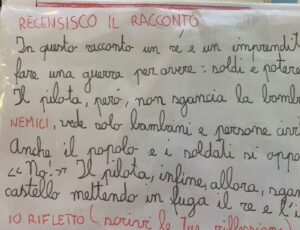 RECENSISCO IL RACCONTO
In questo racconto un ré e un imprendit
fare una guerra per avere: soldi e potere
Il pilota, peró, non sgancia la bomba
NEMICI, vede solo bambini e persone
Anche il popolo e i soldati si oppo
"No." Il pilota, infine, allora, sgan
castello mettendo in fuga il re e l'i
IO RIFLETTO (scrivi le tue riflessioni)